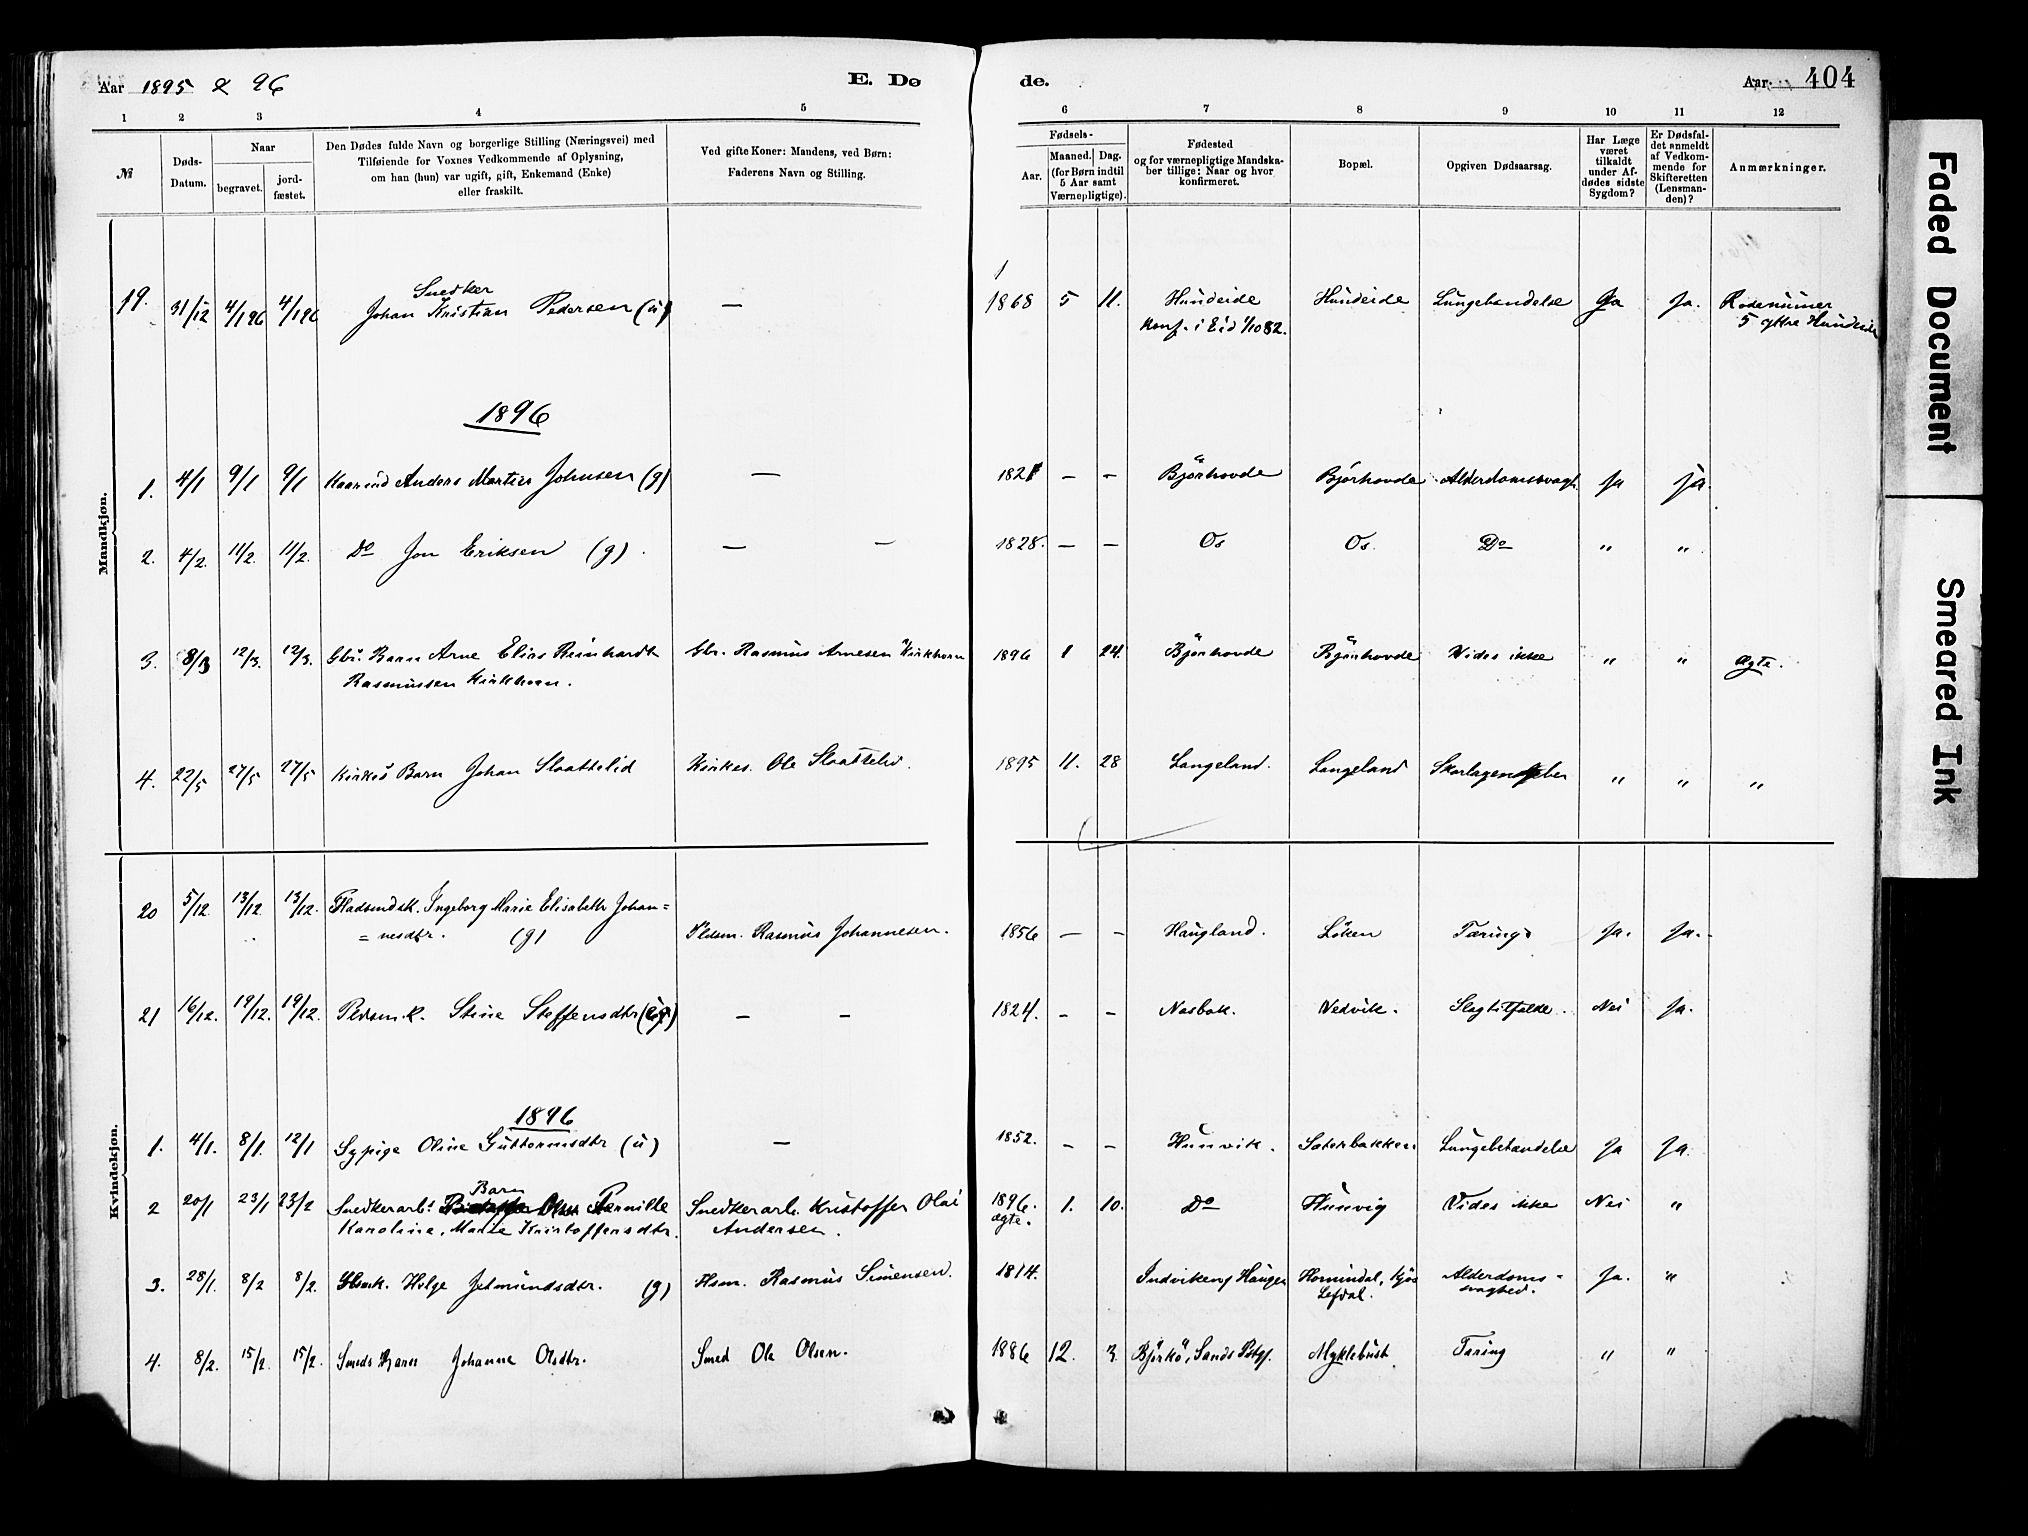 Aar 1895 & 96
E. Dø
de.
Aar
404
1 2 3 4 5
6 7 8 9 10 11 12
№
Døds-
Datum.
Naar
begravet.
jord-
fæstet.
Den Dødes fulde Navn og borgerlige Stilling (Næringsvei) med
Tilføiende for Voxnes Vedkommende af Oplysning,
om han (hun) var ugift, gift, Enkemand (Enke)
eller fraskilt.
Ved gifte Koner: Mandens, ved Børn:
Faderens Navn og Stilling.
Fødsels-
Aar.
Maaned. Dag.
(for Børn indtil
5 Aar samt
Værnepligtige).
Fødested
og for værnepligtige Mandska-
ber tillige: Naar og hvor
konfirmeret.
Bopæl.
Opgiven Dødsaarsag.
Har Læge
været
tilkaldt
under Af-
dødes sidste
Sygdom?
Er Dødsfal-
det anmeldt
af Vedkom-
mende for
Skifteretten
(Lensman-
den)?
Anmærkninger.
Mandkjøn.
Snedker
19. 31/12 4/1 96 4/1 96 Johan Kristian Pedersen (u) — 1868 5 11. Hundeide Hundeide Lungebetændelse Ja Ja. Rodenumer
Konf. i Eid 1/10 82. 5 ytre Hundeide
1896
1. 4/1 9/1 9/1 Kaarmd Anders Martin Johnsen (g) — 1821 — - Bjørhovde Bjørhovde Alderdomssvagh. Ja Ja.
2. 4/2. 11/2. 11/2. Do Jon Eriksen (g). — — 1828. — — Os Os. Do " "
3. 8/3 12/3. 12/3. Gbr. Barn Arne Elias Reinhardt Gbr. Rasmus Arnesen Kirkhorn 1896 1 24. Bjørhovde Bjørhovde Vides ikke " " ægte.
Rasmussen Kirkhorn.
4. 22/5 27/5 27/5 Kirkes Barn Johan Slaattelid Kirkes. Ole Slaattelid. 1895 11. 28 Langeland. Langeland Skarlagensfeber " " "
Kvindekjøn.
20 5/12 13/12 13/12. Pladsmdsk. Ingeborg Marie Elisabeth Johan=
=nesdtr. (g) Pldsm. Rasmus Johannesen. 1856 — - Haugland. Løken Tæring Ja. Ja.
21 16/12. 19/12. 19/12. Pldsmk. Stine Steffensdtr — — 1824. - - Nasbak. Nedvik. Slagtilfælde. Nei Ja.
1896
1. 4/1. 8/1. 12/1 Sypige Oline Guttormsdtr (u) — 1852. - - Hunvik. Sæterbakken Lungebetændelse Ja Ja.
Barn
2 20/1 23/1 23/2 Snedkerarb. Pernille Snedkerarb. Kristoffer Olai 1896. 1. 10. Do Hunvig Vides ikke Nei "
Karoline, Marie Kristoffersdtr. Andersen. ægte.
3. 28/1. 8/2 8/2. Hsmk. Helge Jetmundsdtr. (g) Hsm. Rasmus Simensen. 1814. Indviken, Haugen Hornindal, Kjøs Alderdoms- Ja. "
Lefdal. svaghed.
4. 8/2. 15/2. 15/2. Smeds Barn Johanne Olsdtr. Smed Ole Olsen. 1886 12. 3. Bjørkø, Sands Pstgj. Myklebust Tæring " "
Faded Document
Smeared Ink